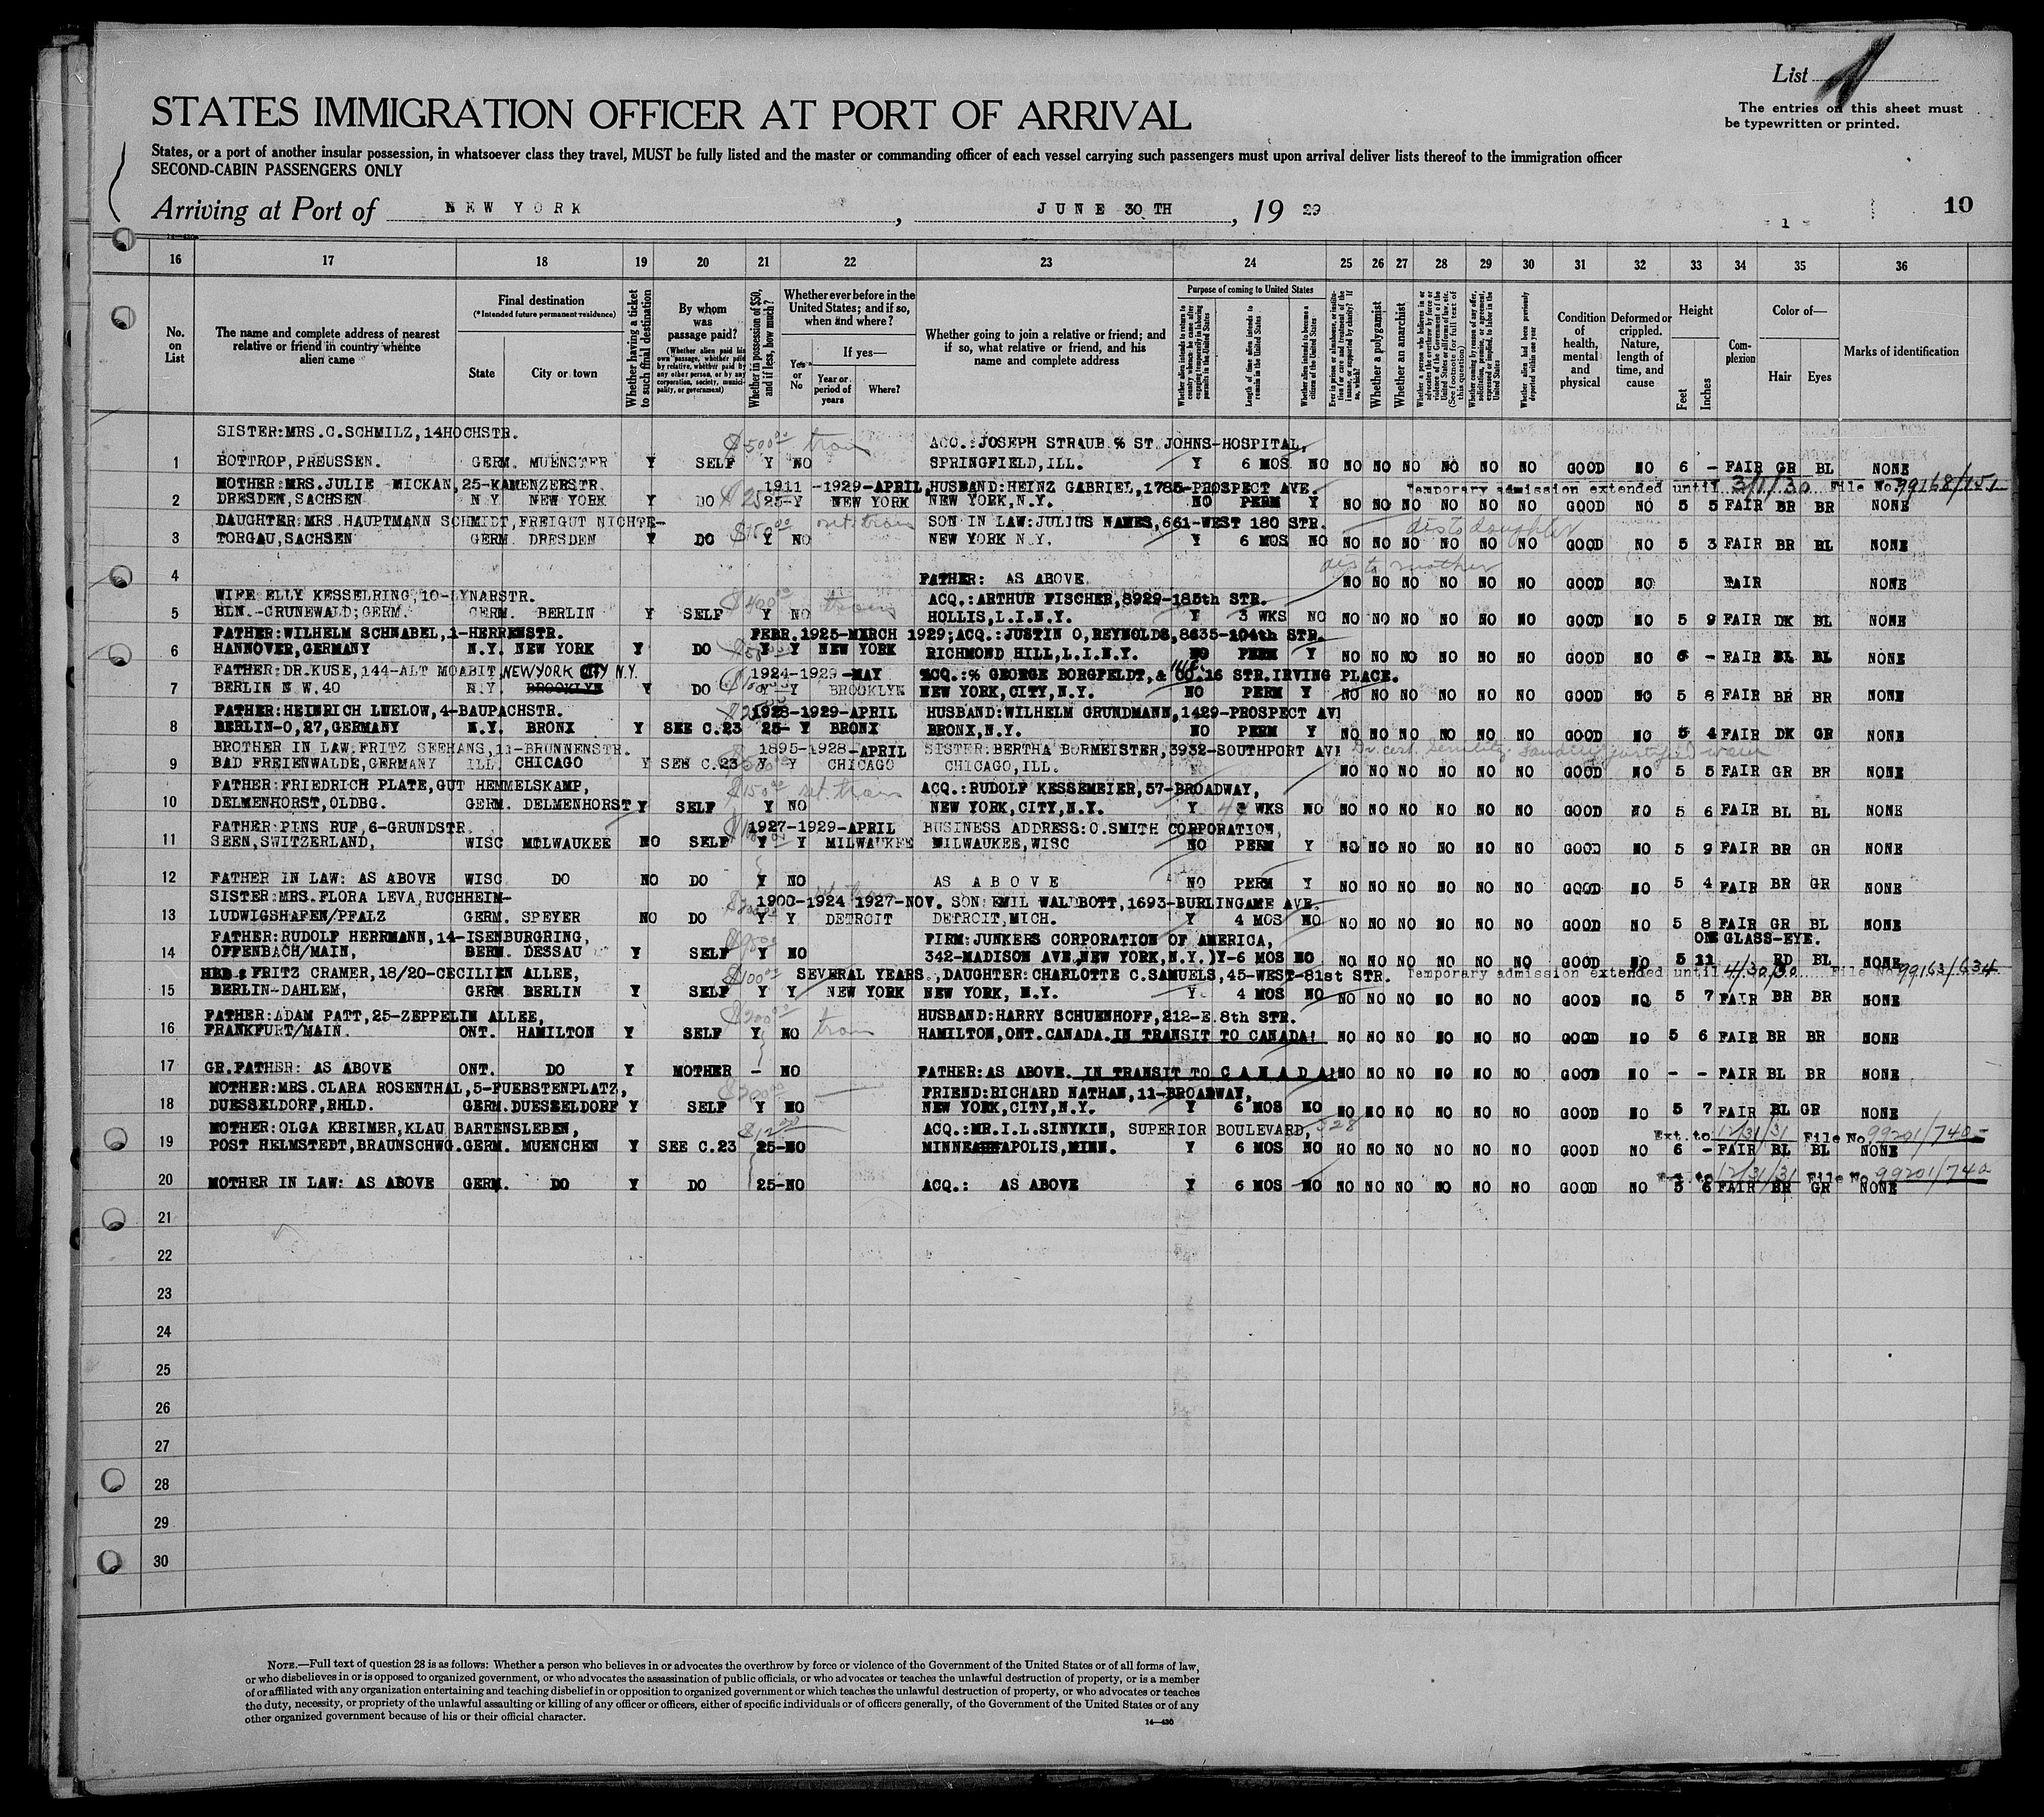 List
The entries on this sheet must
be typewritten or printed.
STATES IMMIGRATION OFFICER AT PORT OF ARRIVAL
States, or a port of another insular possession, in whatsoever class they travel, MUST be fully listed and the master or commanding officer of each vessel carrying such passengers must upon arrival deliver lists thereof to the immigration officer
SECOND-CABIN PASSENGERS ONLY
Arriving at Port of NEW YORK, JUNE 30 TH, 19 29
1
10
16 17 18 19 20 21 22 23 24 25 26 27 28 29 30 31 32 33 34 35 36
No. on List
The name and complete address of nearest relative or friend in country whence alien came
Final destination
(*Intended future permanent residence)
State
City or town
Whether having a ticket to such final destination
By whom was passage paid?
(Whether alien paid his own passage, whether paid by relative, whether paid by any other person, or by any corporation, society, municipality, or government)
Whether in possession of $50, and if less, how much?
Whether ever before in the United States; and if so, when and where?
Yes or No
If yes—
Year or period of years
Where?
Whether going to join a relative or friend; and if so, what relative or friend, and his name and complete address
Purpose of coming to United States
Length of time alien intends to remain in the United States
Whether alien intends to become a citizen of the United States
Whether a polygamist
Whether an anarchist
Condition of health, mental and physical
Deformed or crippled. Nature, length of time, and cause
Height
Feet
Inches
Complexion
Color of—
Hair
Eyes
Marks of identification
SISTER:MRS.C.SCHMILZ,14HOCHSTR. $500 tran ACQ.:JOSEPH STRAUB % ST JOHNS-HOSPITAL,
1 BOTTROP,PREUSSEN. GERM. MUENSTER Y SELF Y NO SPRINGFIELD,ILL. Y 6 MOS NO NO NO NO NO NO NO GOOD NO 6 - FAIR GR BL NONE
MOTHER:MRS.JULIE MICKAN,25-KAMENZERSTR. 1911 -1929-APRIL,HUSBAND:HEINZ GABRIEL,1785-PROSPECT AVE. Temporary admission extended until 3/1/30 File No. 99168/151
2 DRESDEN,SACHSEN N Y NEW YORK Y DO 25-Y NEW YORK NEW YORK,N.Y. NO PERM Y NO NO NO NO NO NO GOOD NO 5 5 FAIR BR BR NONE
DAUGHTER:MRS.HAUPTMANN SCHMIDT,FREIGUT NICHTE- SON IN LAW:JULIUS NAMES,661-WEST 180 STR. dis to daughter
3 TORGAU,SACHSEN GERM. DRESDEN Y DO $150 Y NO NEW YORK N.Y. Y 6 MOS NO NO NO NO NO NO NO GOOD NO 5 3 FAIR BR BL NONE
dis to mother
4 FATHER: AS ABOVE NO NO NO NO NO NO GOOD NO FAIR NONE
WIFE ELLY KESSELRING,10-LYNARSTR. $400 trans ACQ.:ARTHUR FISCHER,8929-185th STR.
5 BLN.-GRUNEWALD;GERM. GERM. BERLIN Y SELF Y NO HOLLIS,L.I.N.Y. Y 3 WKS NO NO NO NO NO NO NO GOOD NO 5 9 FAIR DK BL NONE
FATHER:WILHELM SCHNABEL,1-HERRENSTR. FEBR.1925-MARCH 1929;ACQ.:JUSTIN O,REYNOLDS,8635-104th STR.
6 HANNOVER,GERMANY N.Y. NEW YORK Y DO Y Y NEW YORK RICHMOND HILL,L.I.N.Y. NO PERM Y NO NO NO NO NO NO GOOD NO 6 - FAIR BL BL NONE
FATHER:DR.KUSE,144-ALT MOABIT, NEW YORK CITY N.Y. 1924-1929-MAY ACQ.:% GEORGE BORGFELDT,& CO.16 STR.IRVING PLACE.
7 BERLIN N W.40 N.Y. BROOKLYN Y DO Y Y BROOKLYN NEW YORK,CITY,N.Y. NO PERM Y NO NO NO NO NO NO GOOD NO 5 8 FAIR BR BR NONE
FATHER:HEINRICH LUELOW,4-BAUPACHSTR. 1928-1929-APRIL HUSBAND:WILHELM GRUNDMANN,1429-PROSPECT AV
8 BERLIN-O,27,GERMANY N.Y. BRONX Y SEE C.23 25- Y BRONX BRONX,N.Y. NO PERM Y NO NO NO NO NO NO GOOD NO 5 4 FAIR DK GR NONE
BROTHER IN LAW:FRITZ SEEHANS,11-BRUNNENSTR. 1895-1928-APRIL SISTER:BERTHA BURMEISTER,3932-SOUTHPORT AV Dr. cert. Senility.
9 BAD FREIENWALDE,GERMANY ILL. CHICAGO Y SEE C.23 Y Y CHICAGO CHICAGO,ILL. NO NO NO NO NO NO NO GOOD NO 5 5 FAIR GR BR NONE
FATHER:FRIEDRICH PLATE,GUT HEMMELSKAMP, $150 ret. tran ACQ.:RUDOLF KESSEMEIER,57-BROADWAY,
10 DELMENHORST,OLDBG. GERM. DELMENHORST Y SELF Y NO NEW YORK,CITY,N.Y. Y WKS NO NO NO NO NO NO NO GOOD NO 5 6 FAIR BL BL NONE
FATHER:PINS RUF,6-GRUNDSTR. 1927-1929-APRIL BUSINESS ADDRESS:O.SMITH CORPORATION,
11 SEEN,SWITZERLAND, WISC MILWAUKEE NO SELF Y Y MILWAUKEE MILWAUKEE,WISC NO PERM Y NO NO NO NO NO NO GOOD NO 5 9 FAIR BR GR NONE
12 FATHER IN LAW: AS ABOVE WISC DO NO DO Y NO AS ABOVE NO PERM Y NO NO NO NO NO NO GOOD NO 5 4 FAIR BR GR NONE
SISTER:MRS.FLORA LEVA,RUCHHEIM- 1900-1924 1927-NOV. SON:EMIL WALDBOTT,1693-BURLINGAME AVE.
13 LUDWIGSHAFEN/PFALZ GERM. SPEYER NO DO Y Y DETROIT DETROIT,MICH. Y 4 MOS NO NO NO NO NO NO NO GOOD NO 5 8 FAIR GR BL NONE
FATHER:RUDOLF HERRMANN,14-ISENBURGRING, FIRM:JUNKERS CORPORATION OF AMERICA, ONE GLASS-EYE.
14 OFFENBACH/MAIN, BERM. DESSAU Y SELF Y NO 342-MADISON AVE,NEW YORK,N.Y.)Y-6 MOS NO NO NO NO NO NO NO GOOD NO 5 11 RD BL NONE
FRITZ CRAMER,18/20-CECILIEN ALLEE, $100 SEVERAL YEARS.,DAUGHTER:CHARLOTTE C.SAMUELS,45-WEST-81st STR. Temporary admission extended until 4/30/30 File No. 99163/634
15 BERLIN-DAHLEM, GERM BERLIN Y SELF Y Y NEW YORK NEW YORK, N.Y. Y 4 MOS NO NO NO NO NO NO NO GOOD NO 5 7 FAIR BR BR NONE
FATHER:ADAM PATT,25-ZEPPELIN ALLEE, $200 tran HUSBAND:HARRY SCHUENHOFF,212-E.8th STR.
16 FRANKFURT/MAIN. ONT. HAMILTON Y SELF Y NO HAMILTON,ONT.CANADA.IN TRANSIT TO CANADA! NO NO NO NO NO NO GOOD NO 5 6 FAIR BR BR NONE
17 GR.FATHER: AS ABOVE ONT. DO Y MOTHER - NO FATHER:AS ABOVE. IN TRANSIT TO C A N A D A! NO NO NO NO NO NO GOOD NO - - FAIR BL BR NONE
MOTHER:MRS.CLARA ROSENTHAL,5-FUERSTENPLATZ, $300 FRIEND:RICHARD NATHAN,11-BROADWAY,
18 DUESSELDORF,RHLD. GERM.DUESSELDORF Y SELF Y NO NEW YORK,CITY,N.Y. Y 6 MOS NO NO NO NO NO NO NO GOOD NO 5 7 FAIR BL GR NONE
MOTHER:OLGA KREIMER,KLAU BARTENSLEBEN, ACQ.:MR.I.L.SINYKIN, SUPERIOR BOULEVARD, 328 Ext. to 12/31/31 File No. 99201/740
19 POST HELMSTEDT,BRAUNSCHWG.GERM. MUENCHEN Y SEE C.23 25-NO MINNEAPOLIS,MINN. Y 6 MOS NO NO NO NO NO NO NO GOOD NO 6 - FAIR BL BL NONE
Ext. to 12/31/31 File No 99201/740
20 MOTHER IN LAW: AS ABOVE GERM. DO Y DO 25-NO ACQ.: AS ABOVE Y 6 MOS NO NO NO NO NO NO NO GOOD NO 5 6 FAIR BR GR NONE
21
22
23
24
25
26
27
28
29
30
NOTE.—Full text of question 28 is as follows: Whether a person who believes in or advocates the overthrow by force or violence of the Government of the United States or of all forms of law,
or who disbelieves in or is opposed to organized government, or who advocates the assassination of public officials, or who advocates or teaches the unlawful destruction of property, or is a member
of or affiliated with any organization entertaining and teaching disbelief in or opposition to organized government or which teaches the unlawful destruction of property, or who advocates or teaches
the duty, necessity, or propriety of the unlawful assaulting or killing of any officer or officers, either of specific individuals or of officers generally, of the Government of the United States or of any
other organized government because of his or their official character.
14—430